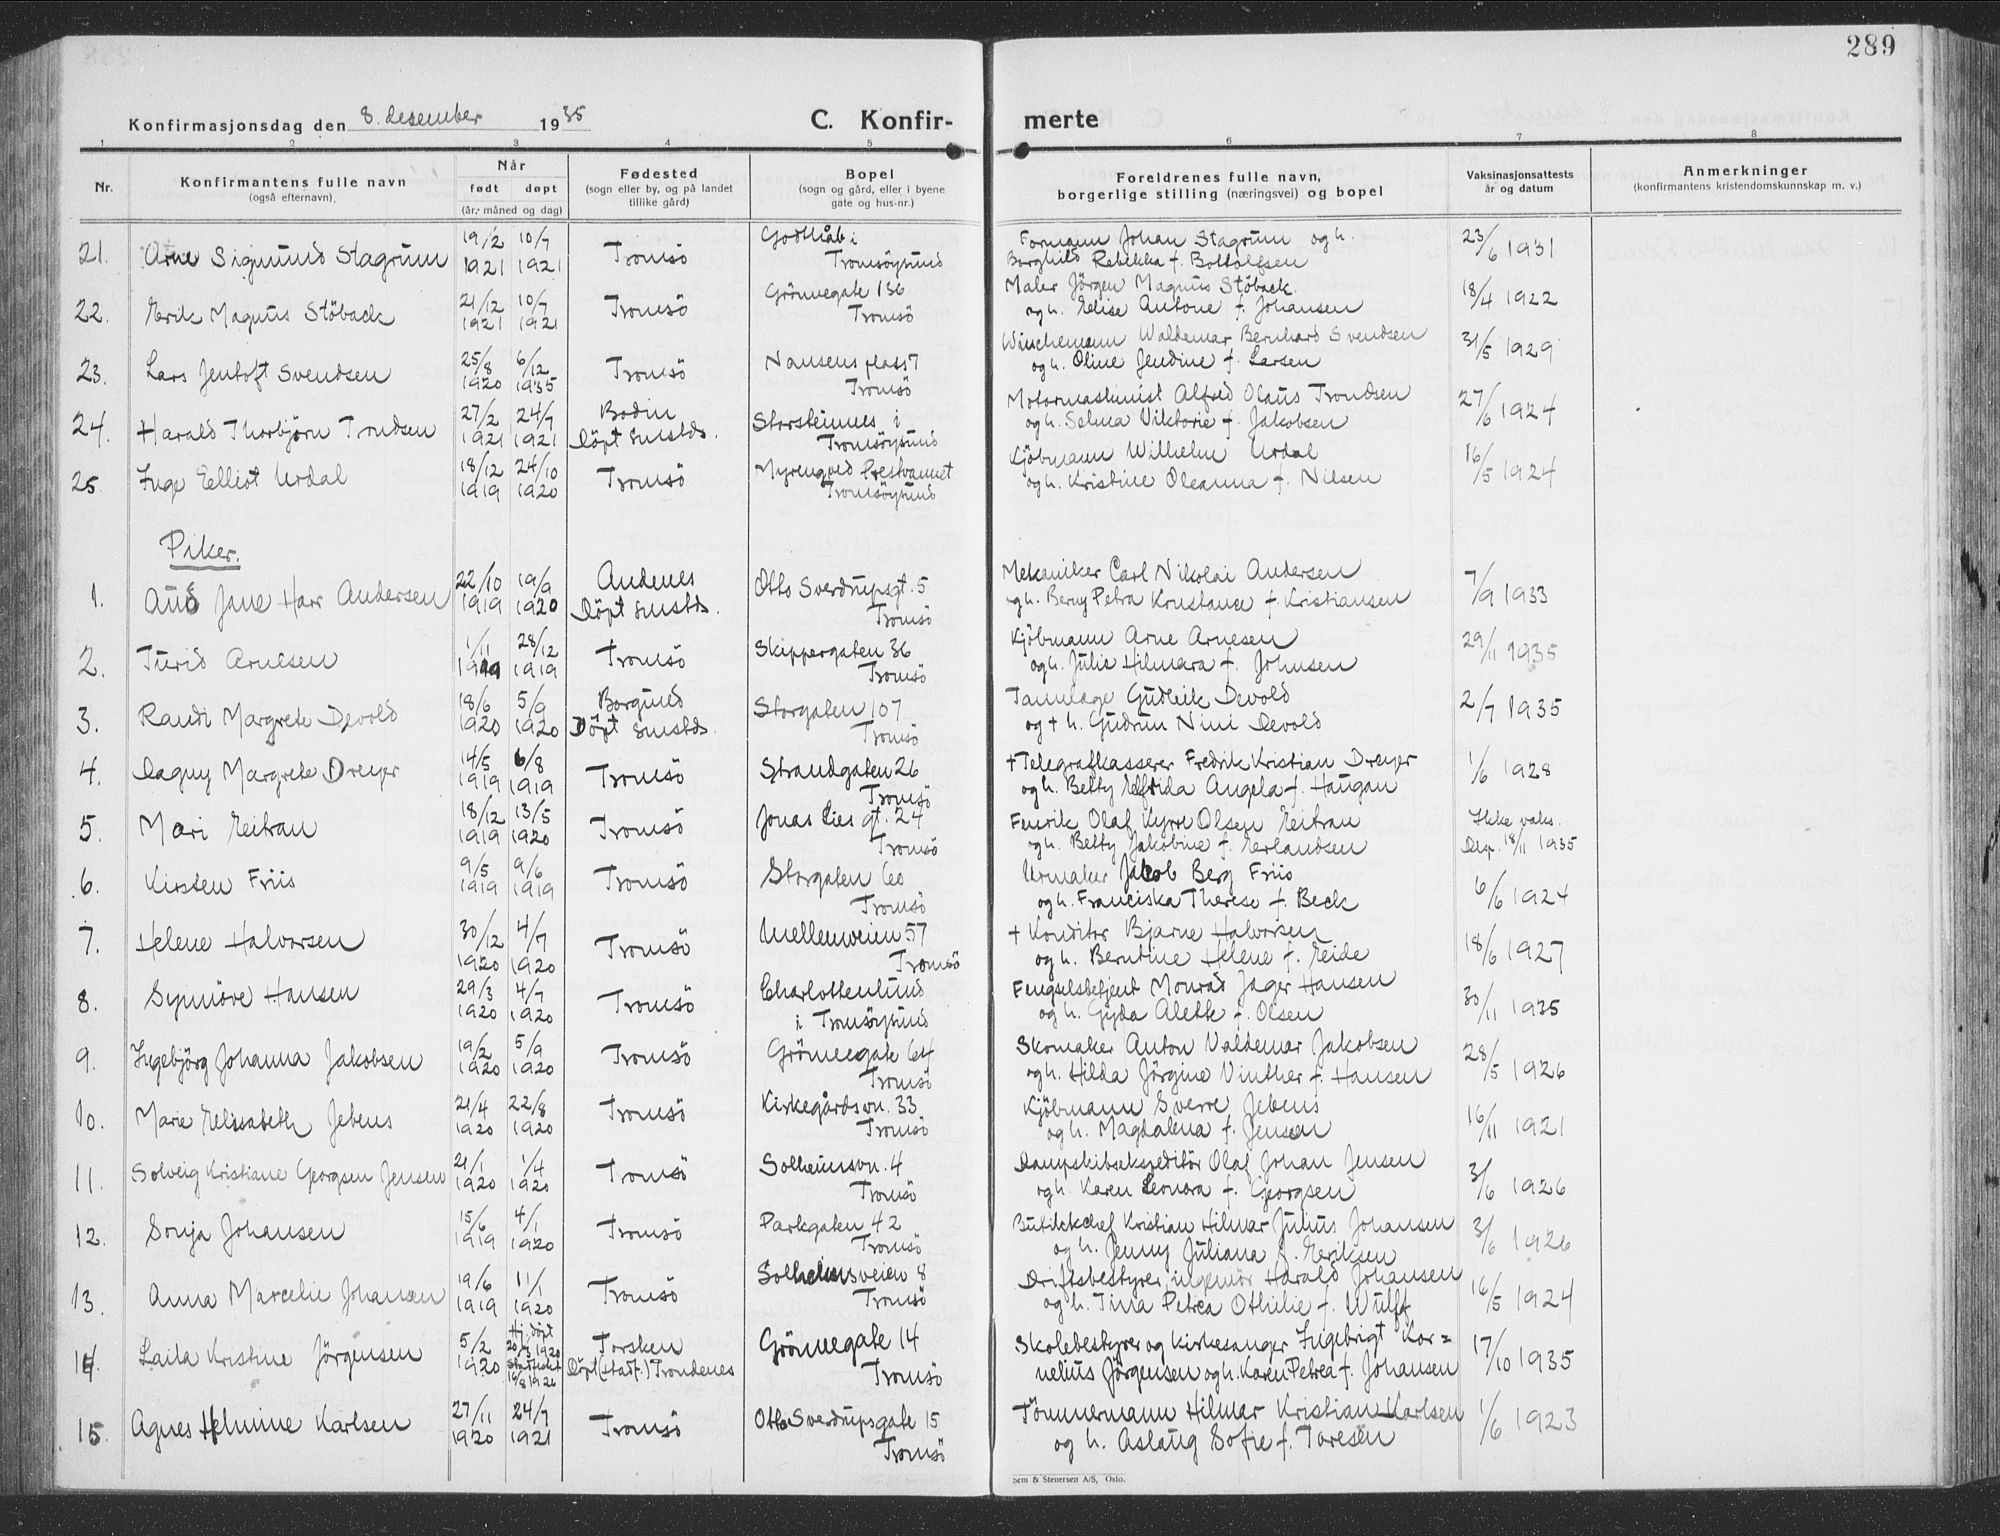 289
Konfirmasjonsdag den 8. desember 1935
C. Konfir-
merte
1 2 3 4 5 6 7 8
Nr.
Konfirmantens fulle navn
(også efternavn).
Når
født døpt
(år, måned og dag)
Fødested
(sogn eller by, og på landet
tillike gård)
Bopel
(sogn og gård, eller i byene
gate og hus-nr.)
Foreldrenes fulle navn,
borgerlige stilling (næringsvei) og bopel
Vaksinasjonsattests
år og datum
Anmerkninger
(konfirmantens kristendomskunnskap m. v.)
19/2 10/7 Godthåb i Formann Johan Stagrum og h. 23/6 1931
21. Arne Sigmund Stagrum 1921 1921 Tromsö Tromsöysund Borghild Rebikka f. Bottolfsen
21/12 10/7 Grönnegate 136 Maler Jörgen Magnus Stöback 18/4 1922
22. Erik Magnus Stöback 1921 1921 Tromsö Tromsö og h. Elise Antone f. Johansen
25/8 6/12 Nansens plass 7 Winchemann Waldemar Bernhard Svendsen 31/5 1929
23. Lars Jentoft Svendsen 1920 1935 Tromsö Tromsö og h. Oline Jendine f. Larsen
27/2 24/7 Bodin Storsteinnes i Motormaskinist Alfred Olaus Trondsen 27/6 1924
24. Harald Thorbjörn Trondsen 1921 1921 Döpt smstds. Tromsöysund og h. Selma Viktorie f. Jakobsen
18/12 24/10 Myrengved Prestvannet Kjöbmann Wilhelm Urdal 16/5 1924
25. Inge Elliot Urdal 1919 1920 Tromsö Tromsöysund og h. Kristine Oleanna f. Nilsen
Piker.
22/10 19/9 Andenes Otto Sverdrupsgt. 5 Mekaniker Carl Nikolai Andersen 7/9 1933
1. Aud Jane Harr Andersen 1919 1920 Döpt smstds. Tromsö og h. Berny Petra Konstanse f. Kristiansen
1/11 28/12 Skippergaten 36 Kjöbmann Arne Arnesen 29/11 1935
2. Turid Arnesen 1919 1919 Tromsö Tromsö og h. Julie Hilmara f. Johnsen
18/6 5/9 Borgund Storgaten 107 Tannlæge Gudleik Devold 2/7 1935
3. Randi Margrete Devold 1920 1920 Döpt smstds. Tromsö og + h. Gudrun Nini Devold
14/5 6/8 Strandgaten 26 + Telegrafkasserer Fredrik Kristian Dreyer 1/6 1928
4. Dagny Margrete Dreyer 1919 1919 Tromsö Tromsö og h. Betty Elfrida Angela f. Haugan
18/12 13/5 Jonas Lies gt. 24 Fenrik Olaf Kyrre Olsen Eitran Ikke vaks.
5. Mari Eitran 1919 1920 Tromsö Tromsö og h. Betty Jakobine f. Erlandsen Disp. 18/11 1935
9/5 9/6 Storgaten 60 Urmaker Jakob Berg Friis 6/6 1924
6. Kirsten Friis 1919 1919 Tromsö Tromsö og h. Franciska Therese f. Beck
30/12 4/7 Mellemveien 57 + Konditor Bjarne Halvorsen 18/6 1927
7. Helene Halvorsen 1920 1920 Tromsö Tromsö og h. Berntine Helene f. Eide
29/3 4/7 Charlottenlund Fengselsbetjent Monrad Jager Hansen 30/11 1935
8. Synnöve Hansen 1920 1920 Tromsö i Tromsöysund og h. Gyda Alette f. Olsen
19/2 5/9 Grönnegate 64 Skomaker Anton Valdemar Jakobsen 28/5 1926
9. Ingebjörg Johanna Jakobsen 1920 1920 Tromsö Tromsö og h. Hilda Jörgine Vinther f. Hansen
21/4 22/8 Kirkegårdsvn. 33 Kjöbmann Sverre Jebens 16/11 1921
10. Marie Elisabeth Jebens 1920 1920 Tromsö Tromsö og h. Magdalena f. Jensen
21/1 1/4 Solheimsvn. 4 Dampskibsekspeditör Olaf Johan Jensen 3/6 1926
11. Solveig Kristiane Georgsen Jensen 1920 1920 Tromsö Tromsö og h. Karen Leonora f. Georgsen
15/6 4/1 Parkgaten 42 Butikkchef Kristian Hilmar Julius Johansen 3/6 1926
12. Sonja Johansen 1919 1920 Tromsö Tromsö og h. Jenny Juliana f. Eriksen
19/6 11/1 Solheimsveien 8 Driftsbestyrer, ingeniör Harald Johansen 16/5 1924
13. Anna Marcelie Johansen 1919 1920 Tromsö Tromsö og h. Tina Petrea Othilie f. Wulff
5/2 Hj.döpt 20/3 1920 Torsken Grönnegate 14 Skolebestyrer og kirkesanger Ingebrigt Kor= 17/10 1935
14. Laila Kristine Jörgensen 1920 Stadfestet 16/8 1926 Döpt (stadf.) Trondenes Tromsö nelius Jörgensen og h. Karen Petrea f. Johansen
27/11 24/7 Otto Sverdrupsgate 15 Tömmermann Hilmar Kristian Karlsen 1/6 1923
15. Agnes Helmine Karlsen 1920 1921 Tromsö Tromsö og h. Aslaug Sofie f. Toresen
Sem & Stenersen A/S, Oslo.